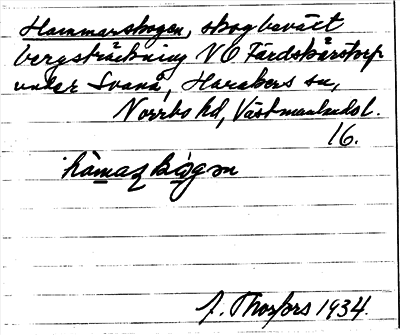 Hammarskogen, skogbeväxt
bergsträckning VO Färdskärstorp
under Svanå, Harakers sn,
Norrbo hd, Västmanlands l.
16.
J. Thorfors 1934.